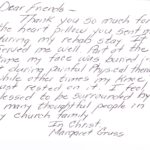 Dear Friends -
Thank you so much for
the heart pillow you sent me
during my rehab stay. It
served me well. Part of the
time my face was buried in
it during painful Physical therapy
while other times my
just rested on it. I feel
blessed to be surrounded by
so many thoughtful people in
my church family.
In Christ
Margaret Gruss